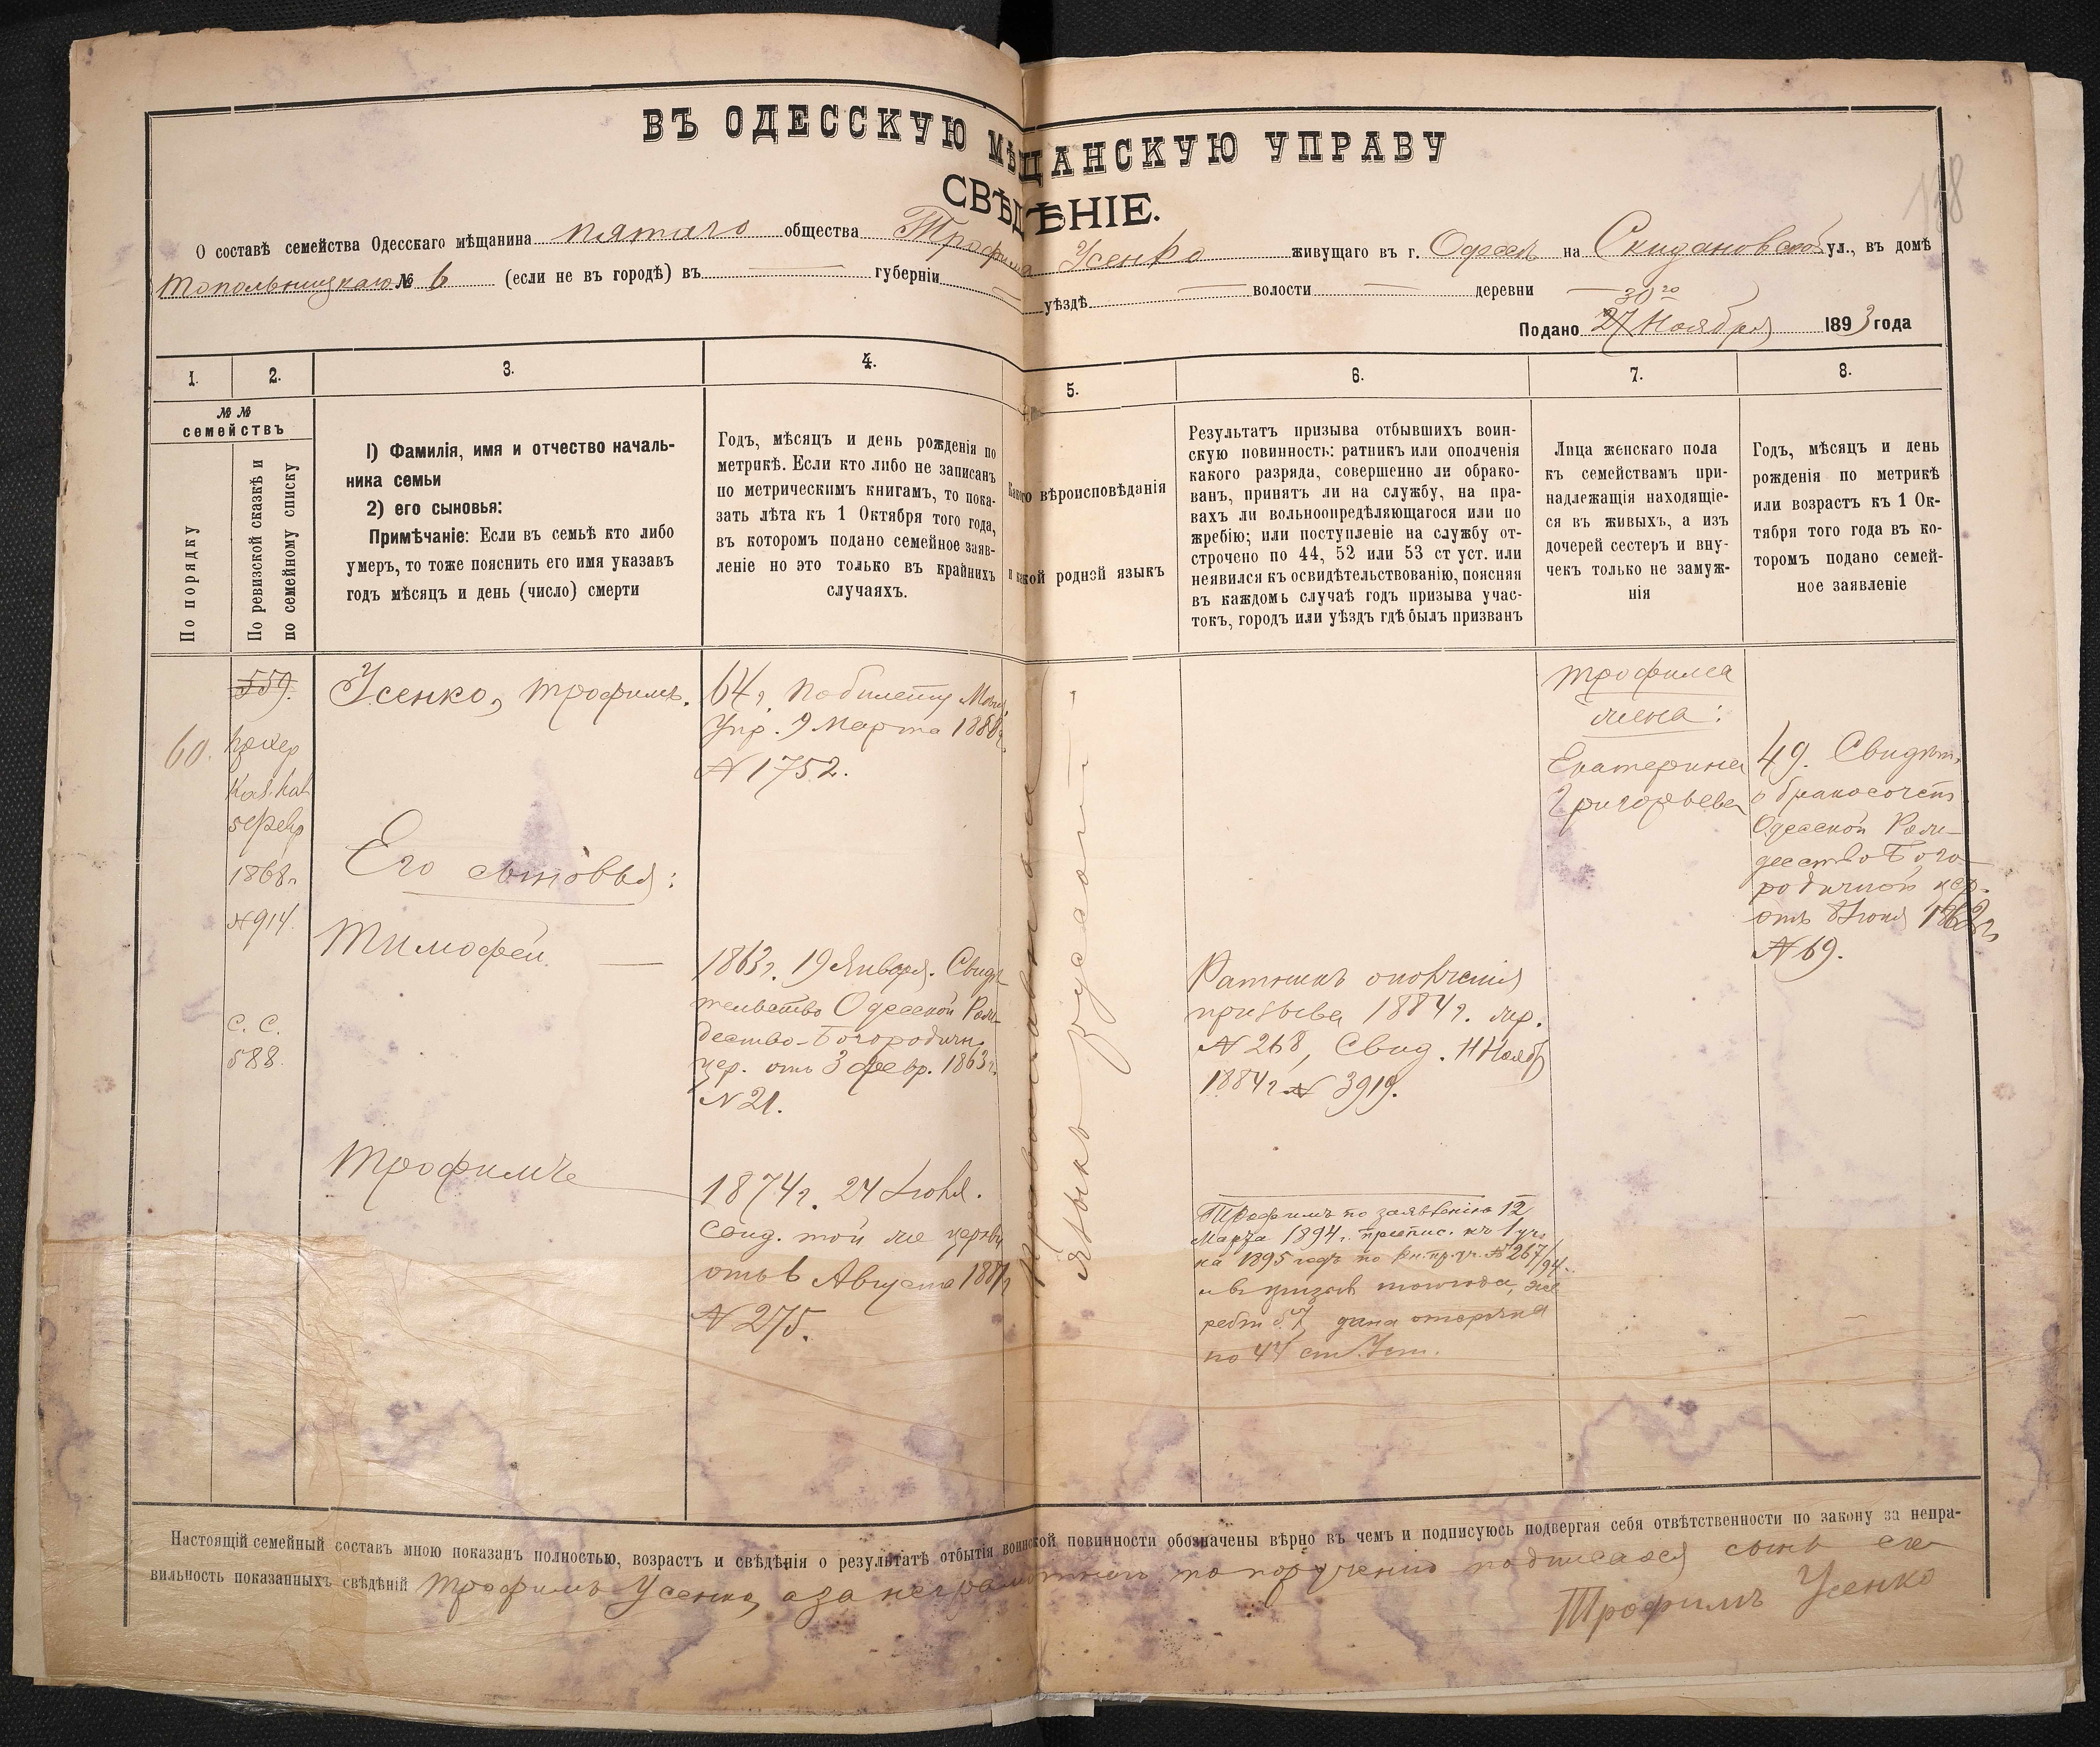 ВЪ ОДЕССКУЮ МѢЩАНСКУЮ УПРАВУ
СВѢДѢНІЕ.
138
О составѣ семейства Одесскаго мѣщанина пятаго общества Трофима Усенко живущаго въ г. Одессѣ на Скидановской ул., въ домѣ
Топольницкаго № 6 (если не въ городѣ) въ — губерніи — уѣздѣ — волости — деревни —
30го
Подано 27 Ноября 1893 года
1. 2. 3. 4. 5. 6. 7. 8.
№ №
семействъ
По порядку
По ревизской сказкѣ и
по семейному списку
1) Фамилія, имя и отчество началь-
ника семьи
2) его сыновья:
Примѣчаніе: Если въ семьѣ кто либо
умеръ, то тоже пояснить его имя указавъ
годъ мѣсяцъ и день (число) смерти
Годъ, мѣсяцъ и день рожденія по
метрикѣ. Если кто либо не записанъ
по метрическимъ книгамъ, то пока-
зать лѣта къ 1 Октября того года,
въ которомъ подано семейное заяв-
леніе но это только въ крайнихъ
случаяхъ.
Какого вѣроисповѣданія
и какой родной языкъ
Результатъ призыва отбывшихъ воин-
скую повинность: ратникъ или ополченія
какого разряда, совершенно ли обрако-
ванъ, принятъ ли на службу, на пра-
вахъ ли вольноопредѣляющагося или по
жребію; или поступленіе на службу от-
строчено по 44, 52 или 53 ст уст. или
неявился къ освидѣтельствованію, поясняя
въ каждомъ случаѣ годъ призыва учас-
токъ, городъ или уѣздъ гдѣ былъ призванъ
Лица женскаго пола
къ семействамъ при-
надлежащія находящіе-
ся въ живыхъ, а изъ
дочерей сестеръ и вну-
чекъ только не замуж-
нія
Годъ, мѣсяцъ и день
рожденія по метрикѣ
или возрастъ къ 1 Ок-
тября того года въ ко-
торомъ подано семей-
ное заявленіе
60.
559.
5 Февр
1868 г
№ 914
С. С.
588.
Усенко, Трофимъ.
64 г. По билету Мѣщ.
Упр. 9 Марта 1888 г.
№ 1752.
Его сыновья:
Тимофей. —
1863 г. 19 Января. Свидѣ
тельство Одесской Рож-
дество-Богородичн.
цер. отъ 3 февр. 1863 г.
№ 21.
Трофимъ
1874 г. 24 Іюля.
Свид. той же церкви
отъ 6 Августа
№ 275.
православные
языкъ русскій
Ратникъ ополченія
призыва 1884 г. жр.
№ 268, Свид. 11 Ноябр
1884 г № 3919.
Трофимъ по заявленію 12
Марта 1894 г. припис. къ 1 уч.
на 1895 годъ по кн. пр. уч. № 267/94.
и въ призывѣ того года, же
ребій № 7, дана отсрочка
по 44 ст. Уст.
Трофима
жена:
Екатерина
Григорьева
49. Свидѣт.
о бракосочет
Одесской Рож-
дество Бого-
родичной цер.
отъ
№ 69.
Настоящій семейный составъ мною показанъ полностью, возрастъ и свѣдѣнія о результатѣ отбытія воинской повинности обозначены вѣрно въ чемъ и подписуюсь подвергая себя отвѣтственности по закону за непра-
вильность показанныхъ свѣдѣній Трофимъ Усенко, а за неграмотнаго по порученію подписался сынъ его
Трофимъ Усенко